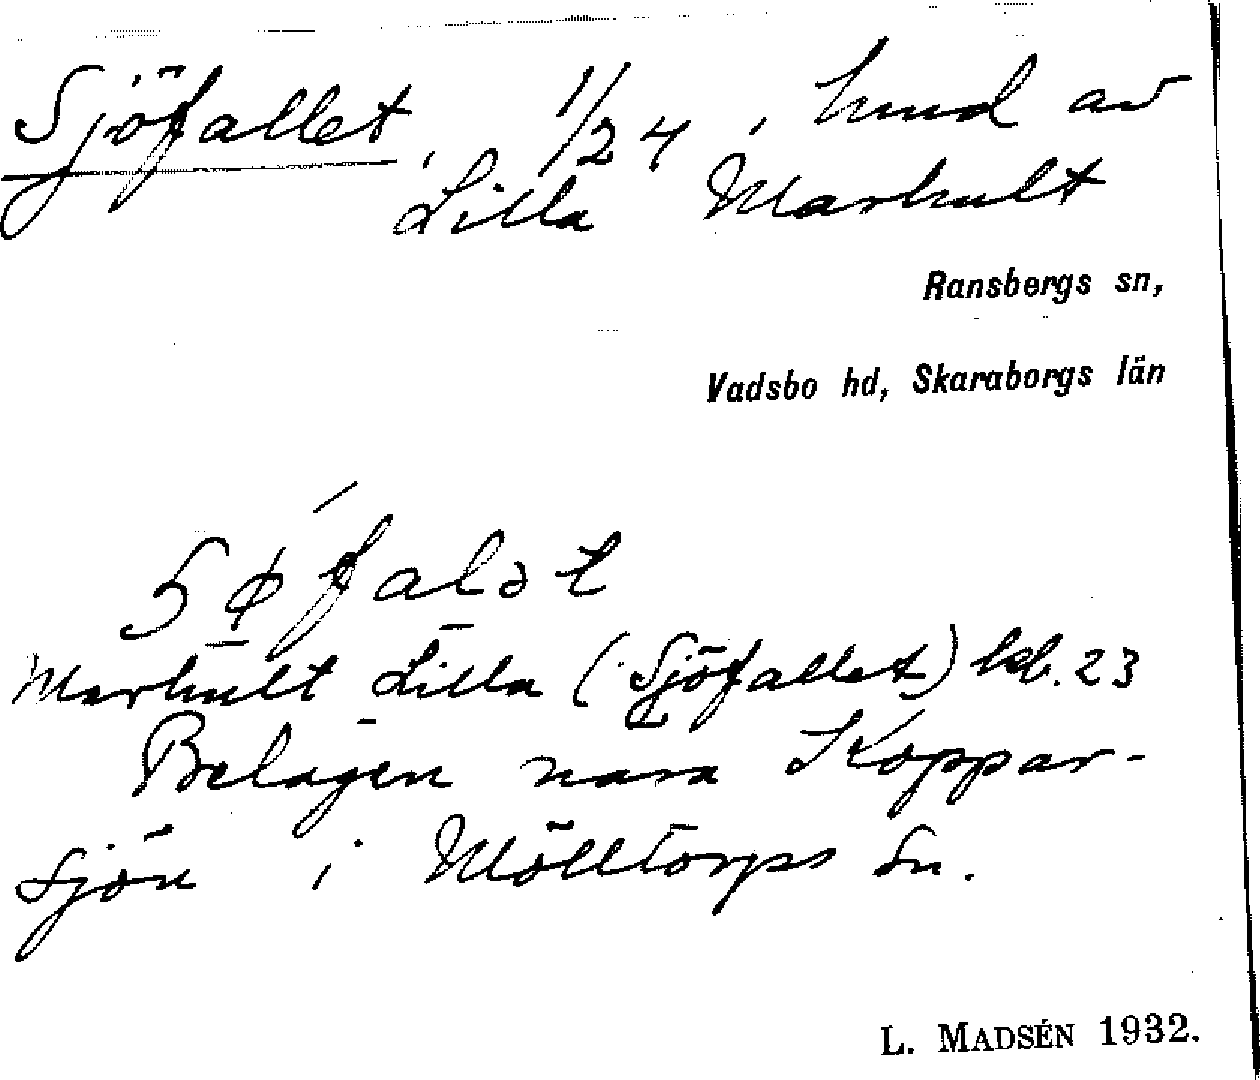 Sjöfallet, 1/24, hmd av
Lilla Marhult
Ransbergs sn,
Vadsbo hd, Skaraborgs län
Marhult Lilla (Sjöfallet) kb. 23
Belägen nära Koppar-
sjön i Mölltorps sn.
L. MADSÉN 1932.